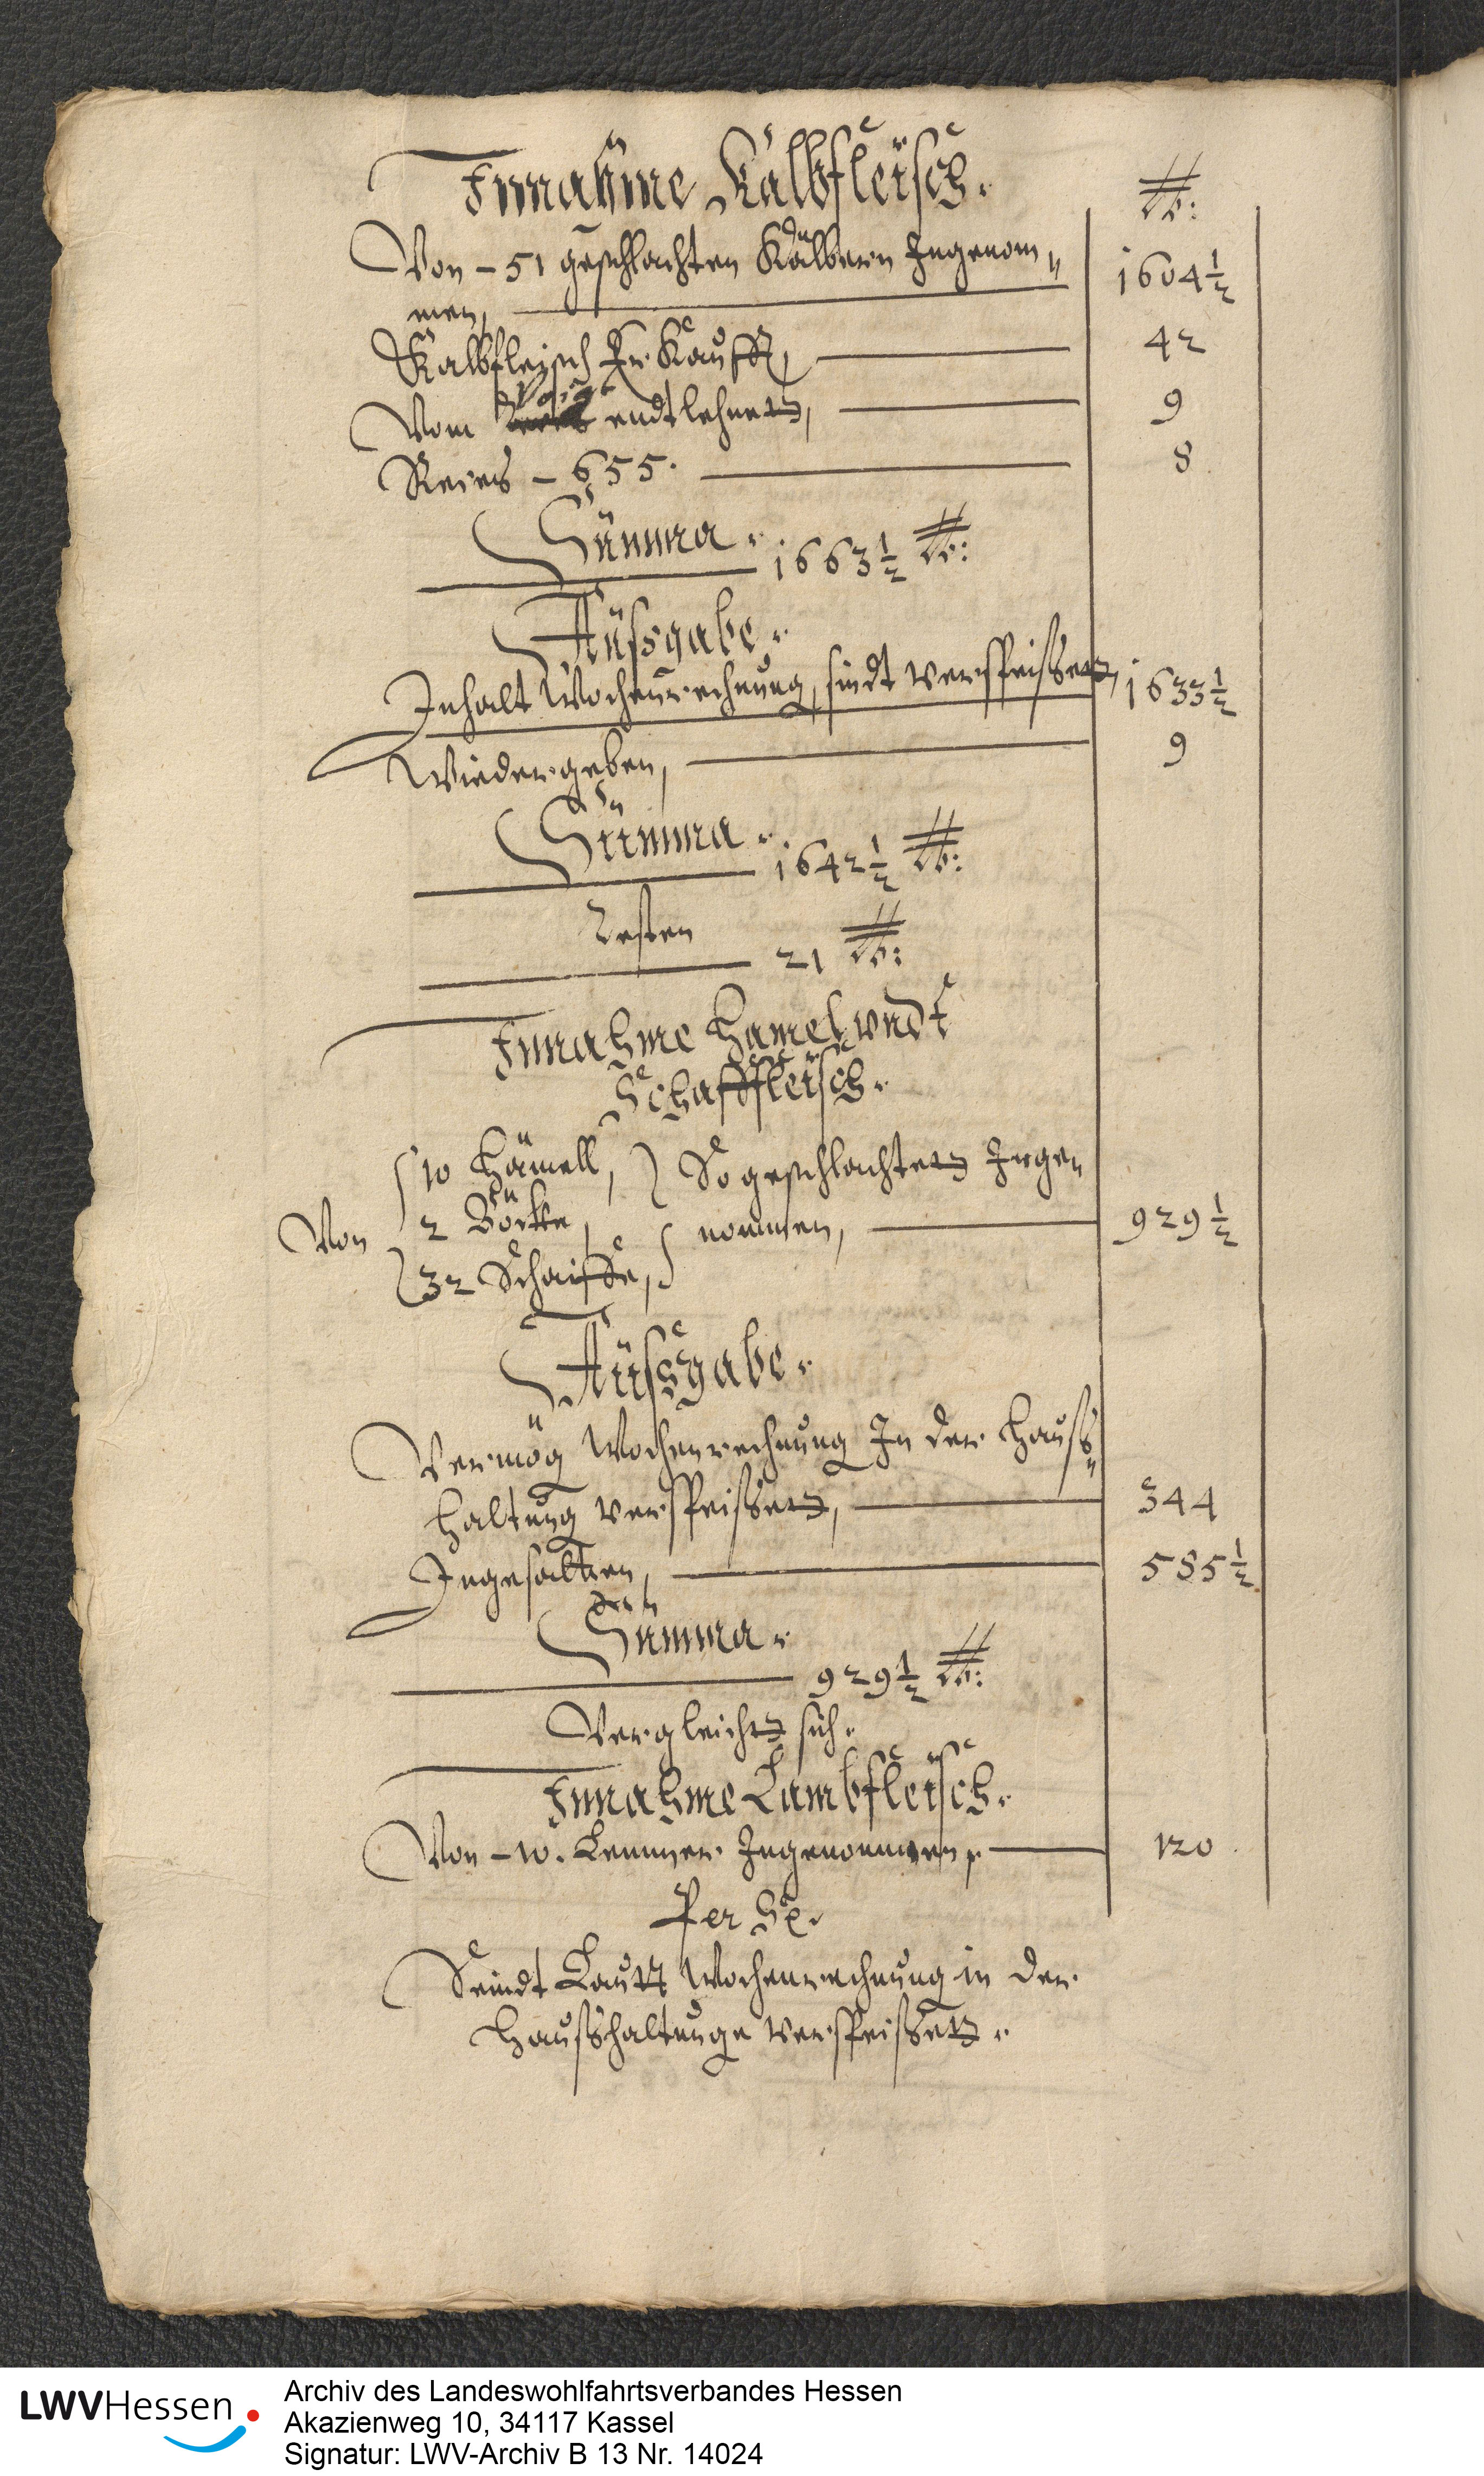 Innahme Kalbfleisch.
lb:
Von – 51 geschlachten Kälbern Ingenom„
men, 1604 1/2
Kalbfleisch Er Kaufft, 42
Vom Voigt endtlehnett, 9
Reces – 655. 8
Summa. 1663 1/2 lb:
Außgabe.
Inhalt Wochenrechnung, sindt verspeisset, 1633 1/2
Wiedergeben, 9
Summa. 1642 1/2 lb:
Resten 21 lb:
Innahme Hamel vndt
Schaffleisch.
10 Hämell, So geschlachtett Inge„
Von 2 Böcke, nommen, 929 1/2
32 Schaiffe,
Außgabe.
Vermög Wochenrechnung In der Hauß„
haltung verspeissett, 344
Ingesaltzen, 585 1/2
Summa. 929 1/2 lb:
Vergleicht sich.
Innahme Lambfleisch.
Von – 10. Lemmer Ingenommen, 120
Per Se.
Seindt Lautt Wochenrechnung in der
Haußhaltunge verspeissett.
LWVHessen
Archiv des Landeswohlfahrtsverbandes Hessen
Akazienweg 10, 34117 Kassel
Signatur: LWV-Archiv B 13 Nr. 14024